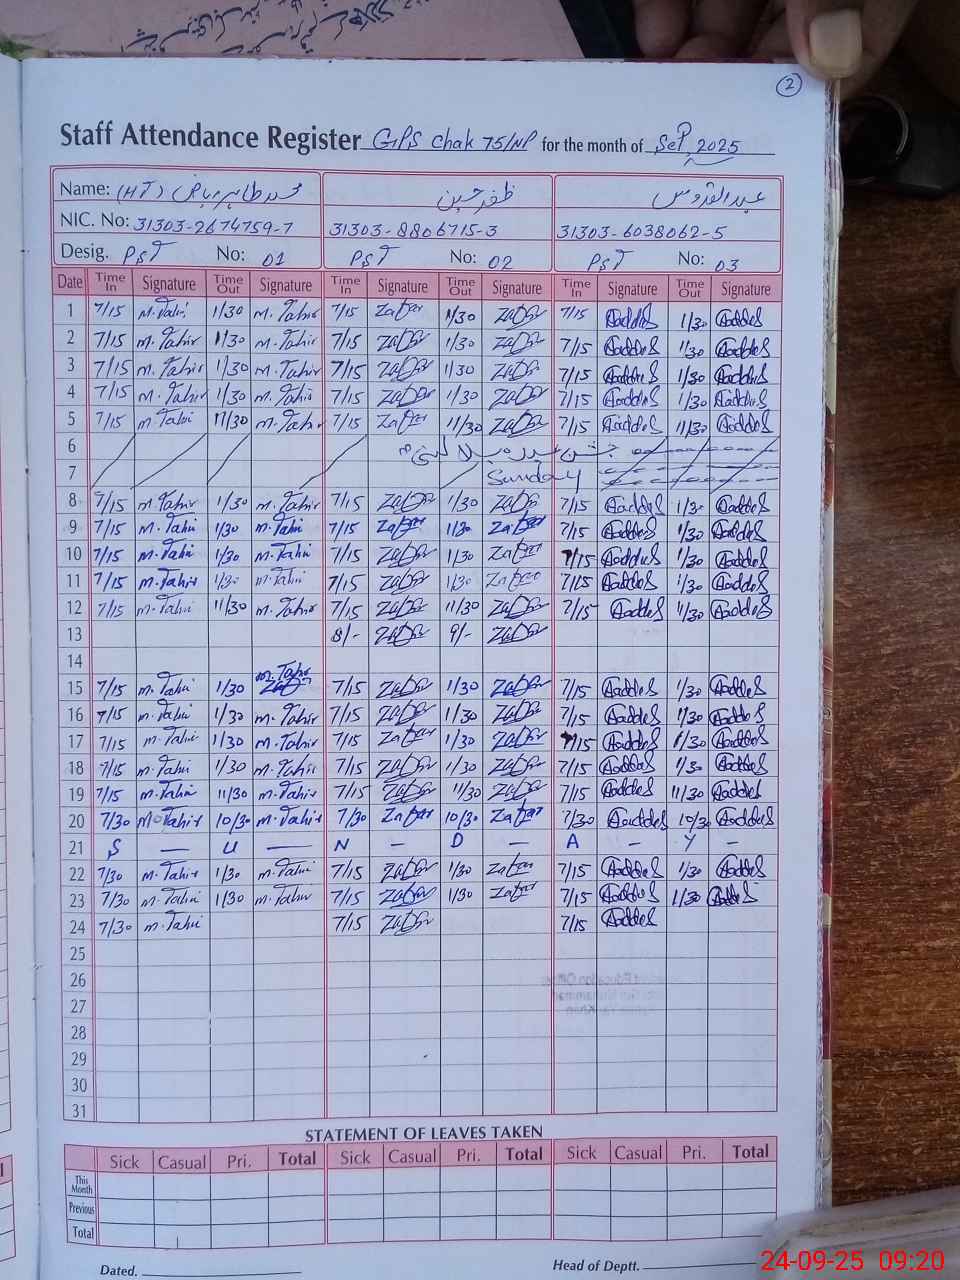 2
Staff Attendance Register GPS Chak 75/NP for the month of Sep, 2025
Name: محمد طاہر ریاض (HT) ظفر حسین عبدالقدوس
NIC. No: 31303-2674759-7 31303-8806715-3 31303-6038062-5
Desig. PST No: 01 PST No: 02 PST No: 03
Date Time In Signature Time Out Signature Time In Signature Time Out Signature Time In Signature Time Out Signature
1 7/15 M.Tahir 1/30 M.Tahir 7/15 Zafar 1/30 Zafar 7/15 1/30
2 7/15 M.Tahir 1/30 M.Tahir 7/15 Zafar 1/30 Zafar 7/15 1/30
3 7/15 M.Tahir 1/30 M.Tahir 7/15 Zafar 1/30 Zafar 7/15 1/30
4 7/15 M.Tahir 1/30 M.Tahir 7/15 Zafar 1/30 Zafar 7/15 1/30
5 7/15 M.Tahir 11/30 M.Tahir 7/15 Zafar 11/30 Zafar 7/15 11/30
6 جشن عید میلاد النبی
7 Sunday
8 7/15 M.Tahir 1/30 M.Tahir 7/15 Zafar 1/30 Zafar 7/15 1/30
9 7/15 M.Tahir 1/30 M.Tahir 7/15 Zafar 1/30 Zafar 7/15 1/30
10 7/15 M.Tahir 1/30 M.Tahir 7/15 Zafar 1/30 Zafar 7/15 1/30
11 7/15 M.Tahir 1/30 M.Tahir 7/15 Zafar 1/30 Zafar 7/15 1/30
12 7/15 M.Tahir 11/30 M.Tahir 7/15 Zafar 11/30 Zafar 7/15 11/30
13 8/- Zafar 9/- Zafar
14
15 7/15 M.Tahir 1/30 M.Tahir 7/15 Zafar 1/30 Zafar 7/15 1/30
16 7/15 M.Tahir 1/30 M.Tahir 7/15 Zafar 1/30 Zafar 7/15 1/30
17 7/15 M.Tahir 1/30 M.Tahir 7/15 Zafar 1/30 Zafar 7/15 1/30
18 7/15 M.Tahir 1/30 M.Tahir 7/15 Zafar 1/30 Zafar 7/15 1/30
19 7/15 M.Tahir 11/30 M.Tahir 7/15 Zafar 11/30 Zafar 7/15 11/30
20 7/30 M.Tahir 10/30 M.Tahir 7/30 Zafar 10/30 Zafar 7/30 10/30
21 S — U — N - D - A - Y -
22 7/30 M.Tahir 1/30 M.Tahir 7/15 Zafar 1/30 Zafar 7/15 1/30
23 7/30 M.Tahir 1/30 M.Tahir 7/15 Zafar 1/30 Zafar 7/15 1/30
24 7/30 M.Tahir 7/15 Zafar 7/15
25
26
27
28
29
30
31
STATEMENT OF LEAVES TAKEN
Sick Casual Pri. Total Sick Casual Pri. Total Sick Casual Pri. Total
This Month
Previous
Total
Dated. Head of Deptt.
24-09-25 09:20